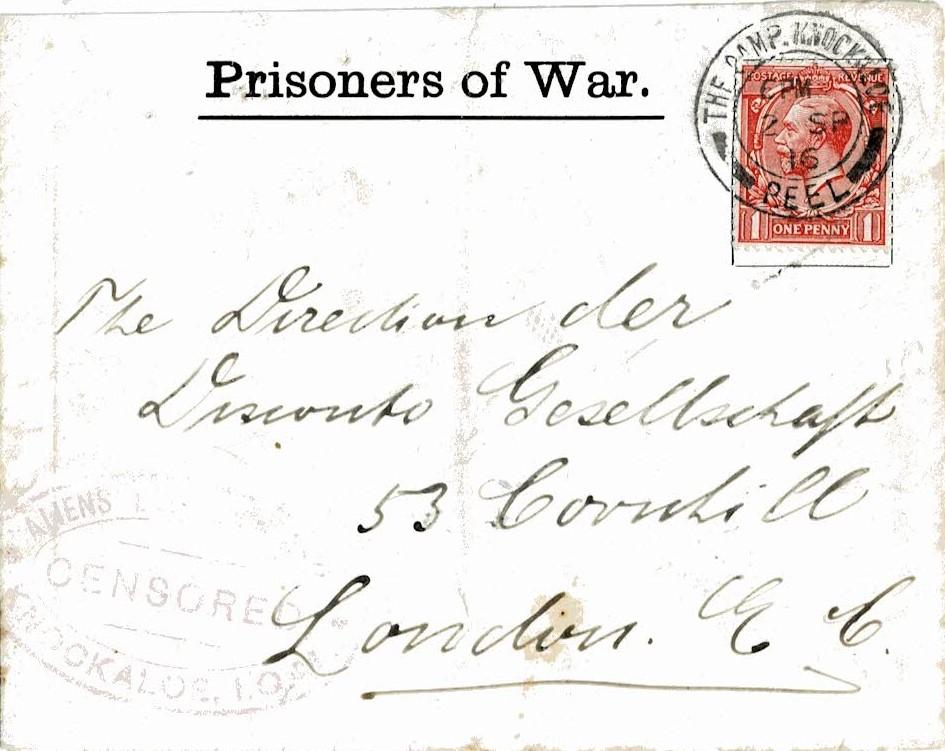 Prisoners of War.
THE CAMP. KNOCKALOE
6 PM
2 SP
16
PEEL
POSTAGE REVENUE
1 ONE PENNY 1
The Direction der
Disconto Gesellschaft
53 Cornhill
London. E C.
ALIENS
CENSORED
KNOCKALOE, I.O.M.